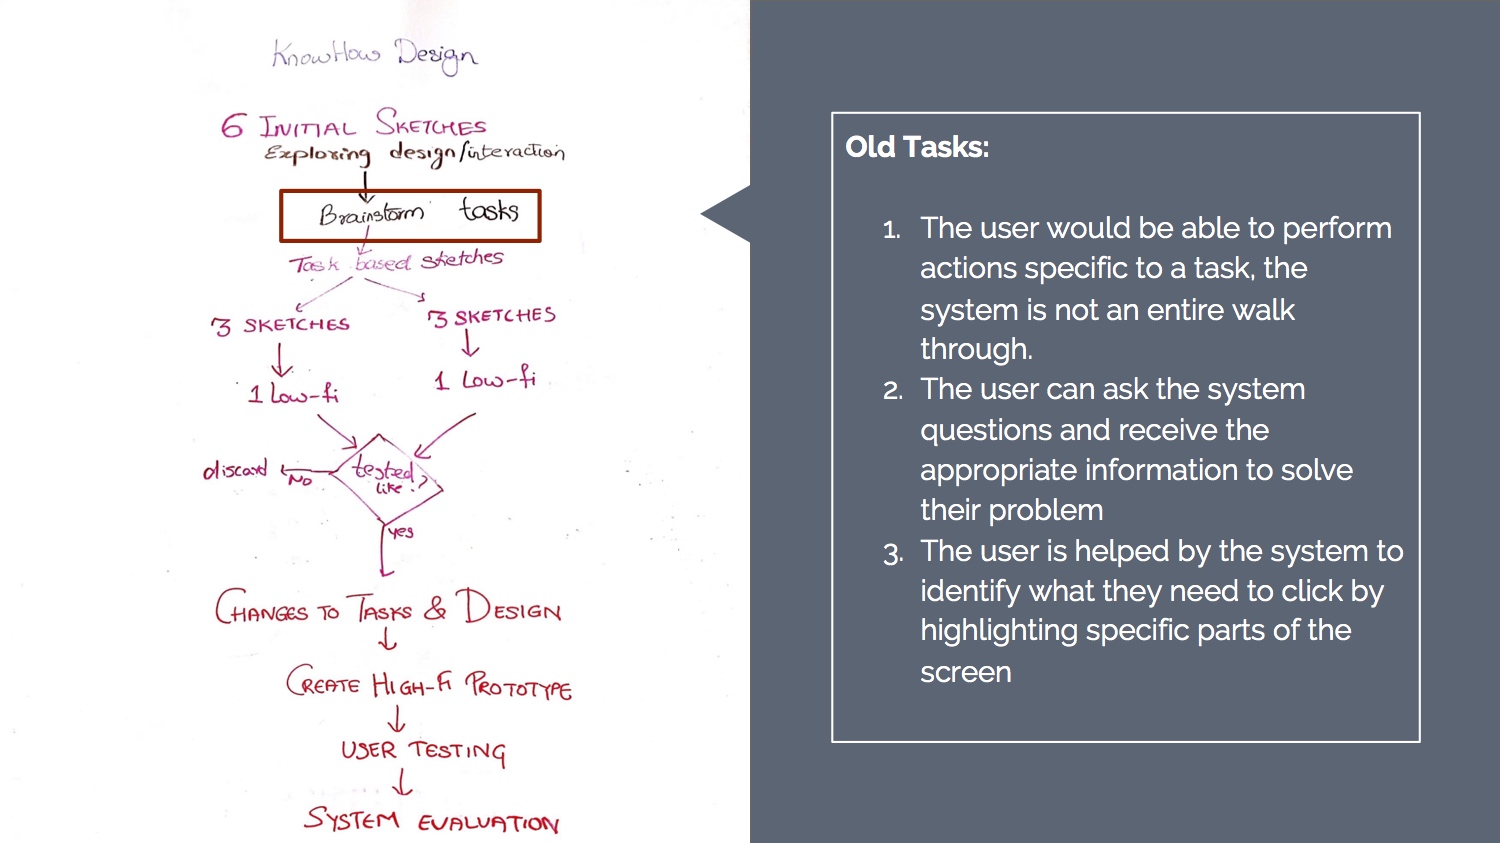 KnowHow Design
6 INITIAL SKETCHES
Exploring design/interaction
Brainstorm tasks
Task based sketches
3 SKETCHES
3 SKETCHES
1 Low-fi
1 Low-fi
tested
like?
discard
NO
yes
CHANGES TO TASKS & DESIGN
CREATE HIGH-FI PROTOTYPE
USER TESTING
SYSTEM EVALUATION
Old Tasks:
1. The user would be able to perform
actions specific to a task, the
system is not an entire walk
through.
2. The user can ask the system
questions and receive the
appropriate information to solve
their problem
3. The user is helped by the system to
identify what they need to click by
highlighting specific parts of the
screen